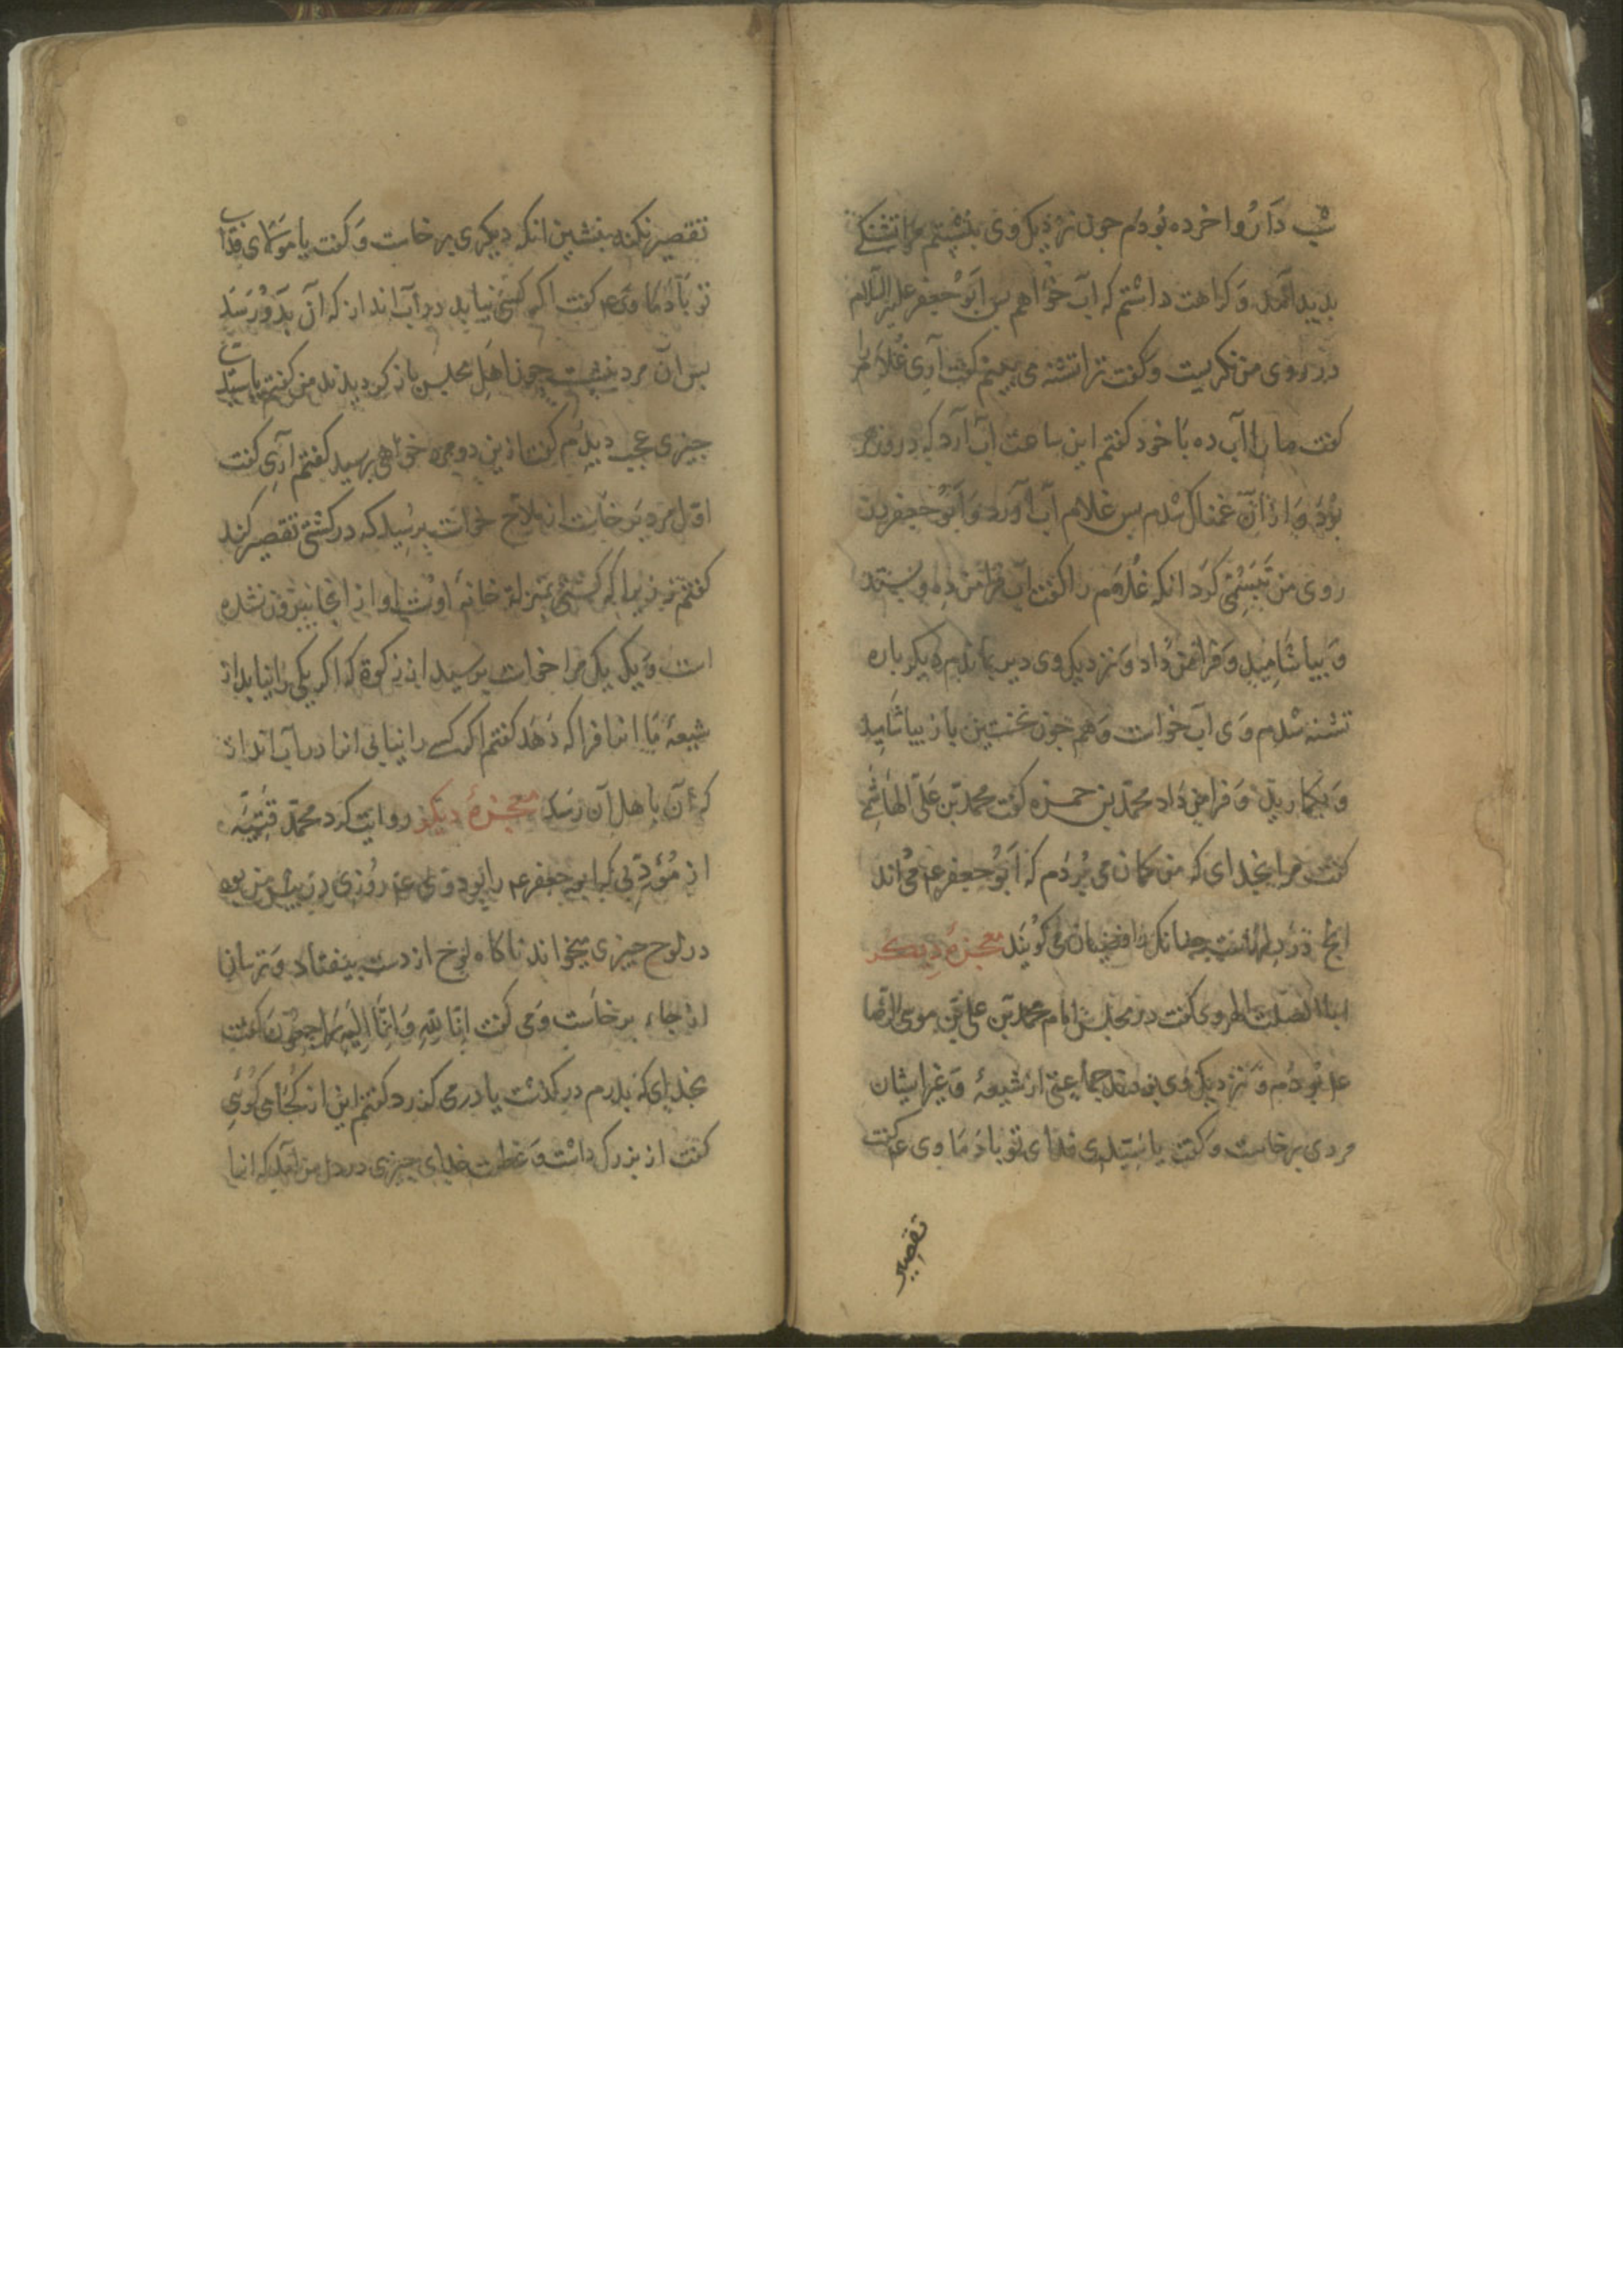 شب دارُوا خرده بُودم جون نزذیك وی بنشستم مرا تشنكی
بدید آمد و كراهت داشتم كه آب خواهم بس ابوجعفر علیه السلام
در روی من نكریست و كفت ترا تشنه می بینم كفت آری غلام را
كفت ما را آب ده با خود كفتم این ساعت آب آرد كه در وزهر
بُود و از آن غمناك شدم بس غلام آب آورد و ابوجعفر در
روی من تبسّمی كرد انكه غلام را كفت آب فرا من ده و بستد
و بیاشامید و فرا من داد و نزدیك وی دیر بماندم دیكر باره
تشنه شدم وی آب خواست و هم جون نخستین باز بیاشامید
و بخندید و فرا من داد محمد بن حمزه كفت محمد بن علی الهاشمی
كفت مرا بخدای كه من كمان می بردم كه ابوجعفر ع می داند
انچ در دلهاست جنانك رافضیان می كویند معجزهٔ دیكر
ابا الصلت الهروی كفت در مجلس امام محمد بن علی بن موسی الرضا
ع بودم و نزدیك وی بودند جماعتی از شیعهٔ و غیر ایشان
مردی برخاست و كفت یا سیدی فدای تو باذ ما وی ع كفت
تقصیر
تقصیر نكند بنشین انكه دیكری برخاست و كفت یا مولای فدای
تو باذ ما وی ع كفت اكر كسی نیابد در آب انداز كه آن بدو رسد
بس آن مرد بنشست جون اهل مجلس باز كردیذند من كفتم یا سیدی
جیزی عجب دیدم كفت ازین دو مرد خواهی برسید كفتم آری كفت
اوّل مرد برخاست از ملاح خواست برسید كه در كشتی تقصیر كند
كفتم نی زیرا كه كشتی بمنزله خانهٔ اوست و او از انجا بیرون نشده
است و دیكر یك مرا خواست برسید از زكوة كه اكر یكی را نیابد از
شیعهٔ ما انرا فرا كه دهد كفتم اكر كسی را نیابی انرا در آب انداز
كه آن باهل آن رسد معجزهٔ دیكر روایت كرد محمد قتیبه
از مؤدبی كه ابوجعفر ع را بود وی ع روزی در بیش من بوه
در لوح جیزی میخواند ناكاه لوح از دست بیفتاد و ترسان
از جاء برخاست و می كفت انّا لله و انّا الیه راجعون كفت
بخدای كه بدرم در كذشت یا در می كذرد كفتم این از كجا می كوئی
كفت از بزرك داشت و عظمت خدای جیزی در دل من آمد كه انرا